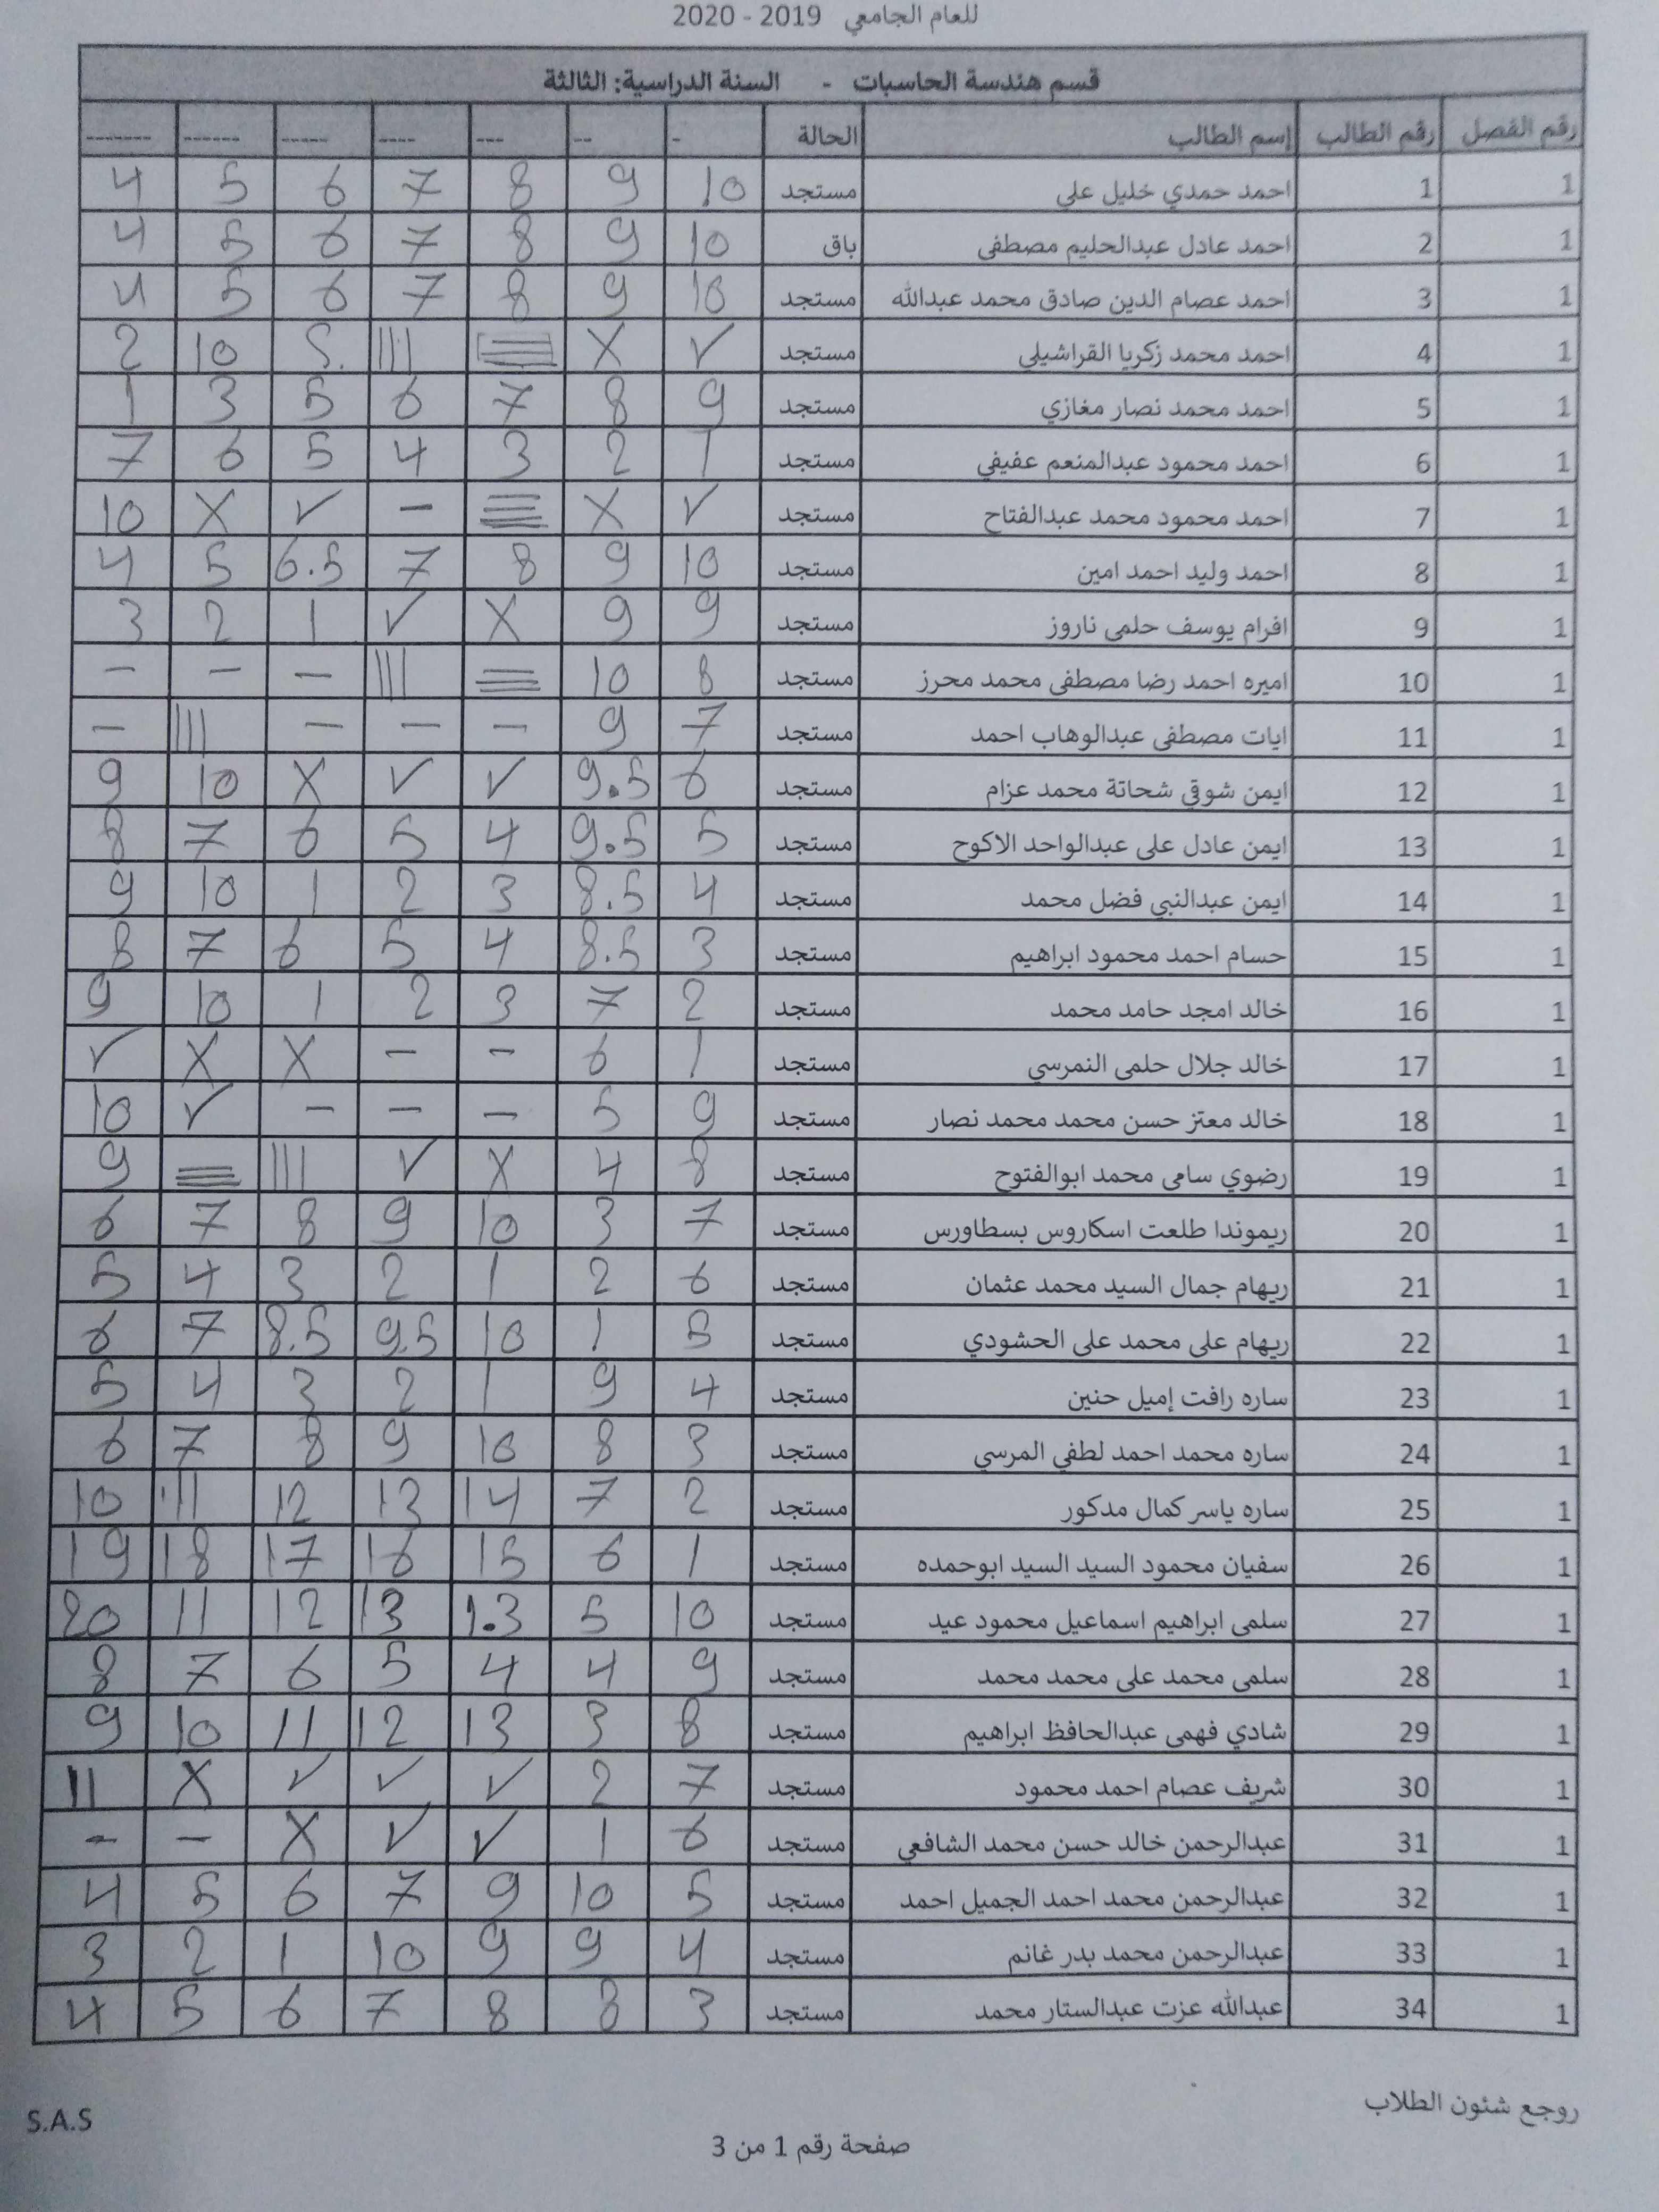 للعام الجامعي 2019 - 2020
قسم هندسة الحاسبات - السنة الدراسية: الثالثة
رقم الفصل رقم الطالب إسم الطالب الحالة - -- --- ---- ----- ------ -------
1 1 احمد حمدي خليل على مستجد 10 9 8 7 6 5 4
1 2 احمد عادل عبدالحليم مصطفى باق 10 9 8 7 6 5 4
1 3 احمد عصام الدين صادق محمد عبدالله مستجد 10 9 8 7 6 5 4
1 4 احمد محمد زكريا القراشيلي مستجد ✓ X ☰ ||| 10 2
1 5 احمد محمد نصار مغازي مستجد 9 8 7 6 5 3 1
1 6 احمد محمود عبدالمنعم عفيفي مستجد 1 2 3 4 5 6 7
1 7 احمد محمود محمد عبدالفتاح مستجد ✓ X ☰ - ✓ X 10
1 8 احمد وليد احمد امين مستجد 10 9 8 7 6.5 5 4
1 9 افرام يوسف حلمى ناروز مستجد 9 9 X ✓ 1 2 3
1 10 اميره احمد رضا مصطفى محمد محرز مستجد 8 10 ☰ ||| - - -
1 11 ايات مصطفى عبدالوهاب احمد مستجد 7 9 - - - ||| -
1 12 ايمن شوقي شحاتة محمد عزام مستجد 6 9.5 ✓ ✓ X 10 9
1 13 ايمن عادل على عبدالواحد الاكوح مستجد 5 9.5 4 5 6 7 8
1 14 ايمن عبدالنبي فضل محمد مستجد 4 8.5 3 2 1 10 9
1 15 حسام احمد محمود ابراهيم مستجد 3 8.5 4 5 6 7 8
1 16 خالد امجد حامد محمد مستجد 2 7 3 2 1 10 9
1 17 خالد جلال حلمى النمرسي مستجد 1 6 - - X X ✓
1 18 خالد معتز حسن محمد محمد نصار مستجد 9 5 - - - ✓ 10
1 19 رضوي سامى محمد ابوالفتوح مستجد 8 4 X ✓ ||| ☰ 9
1 20 ريموندا طلعت اسكاروس بسطاورس مستجد 7 3 10 9 8 7 6
1 21 ريهام جمال السيد محمد عثمان مستجد 6 2 1 2 3 4 5
1 22 ريهام على محمد على الحشودي مستجد 5 1 10 9.5 8.5 7 6
1 23 ساره رافت إميل حنين مستجد 4 9 1 2 3 4 5
1 24 ساره محمد احمد لطفي المرسي مستجد 3 8 10 9 8 7 6
1 25 ساره ياسر كمال مدكور مستجد 2 7 14 13 12 11 10
1 26 سفيان محمود السيد السيد ابوحمده مستجد 1 6 15 16 17 18 19
1 27 سلمى ابراهيم اسماعيل محمود عيد مستجد 10 5 1.3 13 12 11 20
1 28 سلمى محمد على محمد محمد مستجد 9 4 4 5 6 7 8
1 29 شادي فهمى عبدالحافظ ابراهيم مستجد 8 3 13 12 11 10 9
1 30 شريف عصام احمد محمود مستجد 7 2 ✓ ✓ ✓ X 11
1 31 عبدالرحمن خالد حسن محمد الشافعي مستجد 6 1 ✓ ✓ X - -
1 32 عبدالرحمن محمد احمد الجميل احمد مستجد 5 10 9 7 6 5 4
1 33 عبدالرحمن محمد بدر غانم مستجد 4 9 9 10 1 2 3
1 34 عبدالله عزت عبدالستار محمد مستجد 3 8 8 7 6 5 4
روجع شئون الطلاب
S.A.S
صفحة رقم 1 من 3